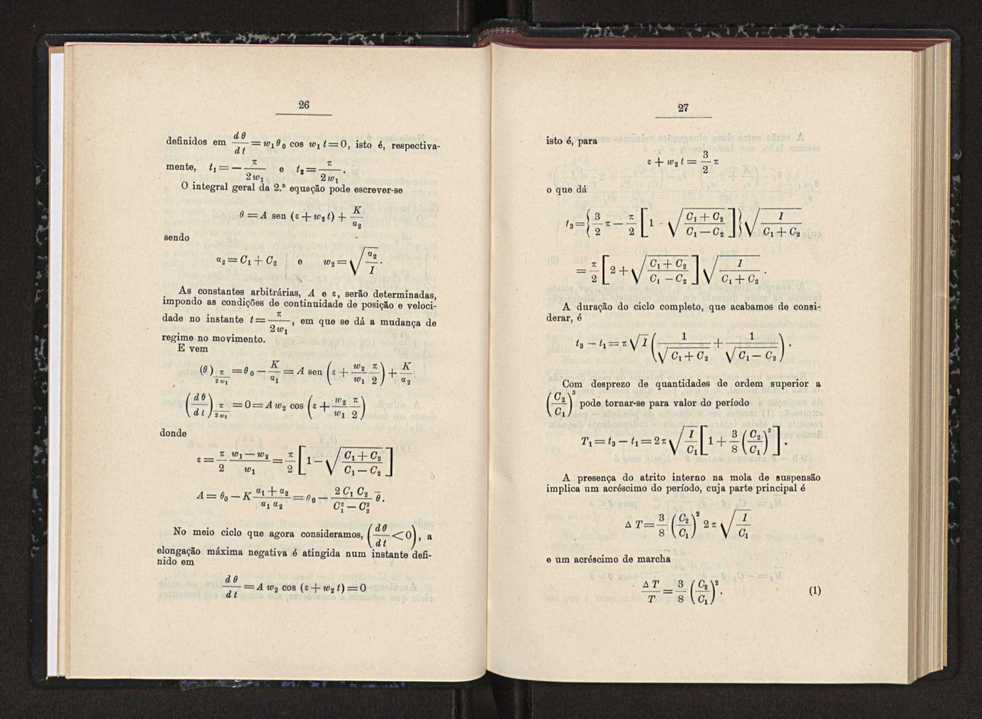 26
definidos em dθ/dt = w₁ θ₀ cos w₁ t = 0, isto é, respectiva-
mente, t₁ = − π/(2 w₁) e t₂ = π/(2 w₁).
O integral geral da 2.ª equação pode escrever-se
θ = A sen (ε + w₂ t) + K/α₂
sendo
α₂ = C₁ + C₂ e w₂ = √(α₂/I).
As constantes arbitrárias, A e ε, serão determinadas,
impondo as condições de continuidade de posição e veloci-
dade no instante t = π/(2 w₁), em que se dá a mudança de
regime no movimento.
E vem
(θ)_{π/(2 w₁)} = θ₀ − K/α₁ = A sen (ε + w₂/w₁ π/2) + K/α₂
(dθ/dt)_{π/(2 w₁)} = 0 = A w₂ cos (ε + w₂/w₁ π/2)
donde
ε = π/2 (w₁ − w₂)/w₁ = π/2 [1 − √((C₁ + C₂)/(C₁ − C₂))]
A = θ₀ − K (α₁ + α₂)/(α₁ α₂) = θ₀ − (2 C₁ C₂)/(C₁² − C₂²) θ̄.
No meio ciclo que agora consideramos, (dθ/dt < 0), a
elongação máxima negativa é atingida num instante defi-
nido em
dθ/dt = A w₂ cos (ε + w₂ t) = 0
27
isto é, para
ε + w₂ t = 3/2 π
o que dá
t₃ = {3/2 π − π/2 [1 − √((C₁ + C₂)/(C₁ − C₂))]} √(I/(C₁ + C₂))
= π/2 [2 + √((C₁ + C₂)/(C₁ − C₂))] √(I/(C₁ + C₂)).
A duração do ciclo completo, que acabamos de consi-
derar, é
t₃ − t₁ = π √I (1/√(C₁ + C₂) + 1/√(C₁ − C₂)).
Com desprezo de quantidades de ordem superior a
(C₂/C₁)² pode tornar-se para valor do período
T₁ = t₃ − t₁ = 2 π √(I/C₁) [1 + 3/8 (C₂/C₁)²].
A presença do atrito interno na mola de suspensão
implica um acréscimo do período, cuja parte principal é
Δ T = 3/8 (C₂/C₁)² 2 π √(I/C₁)
e um acréscimo de marcha
Δ T/T = 3/8 (C₂/C₁)². (1)